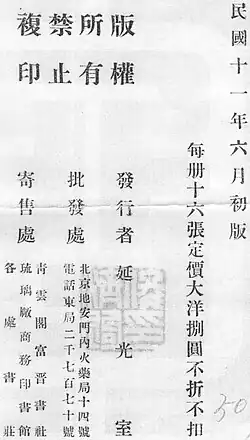 民國十一年六月初版
每册十六張定價大洋捌圓不折不扣
版權所有
禁止複印
發行者 延光室
批發處 北京地安門內火藥局十四號
電話東局二千七百七十號
寄售處 青雲閣富晉書社
琉璃廠商務印書館
各處書莊
50